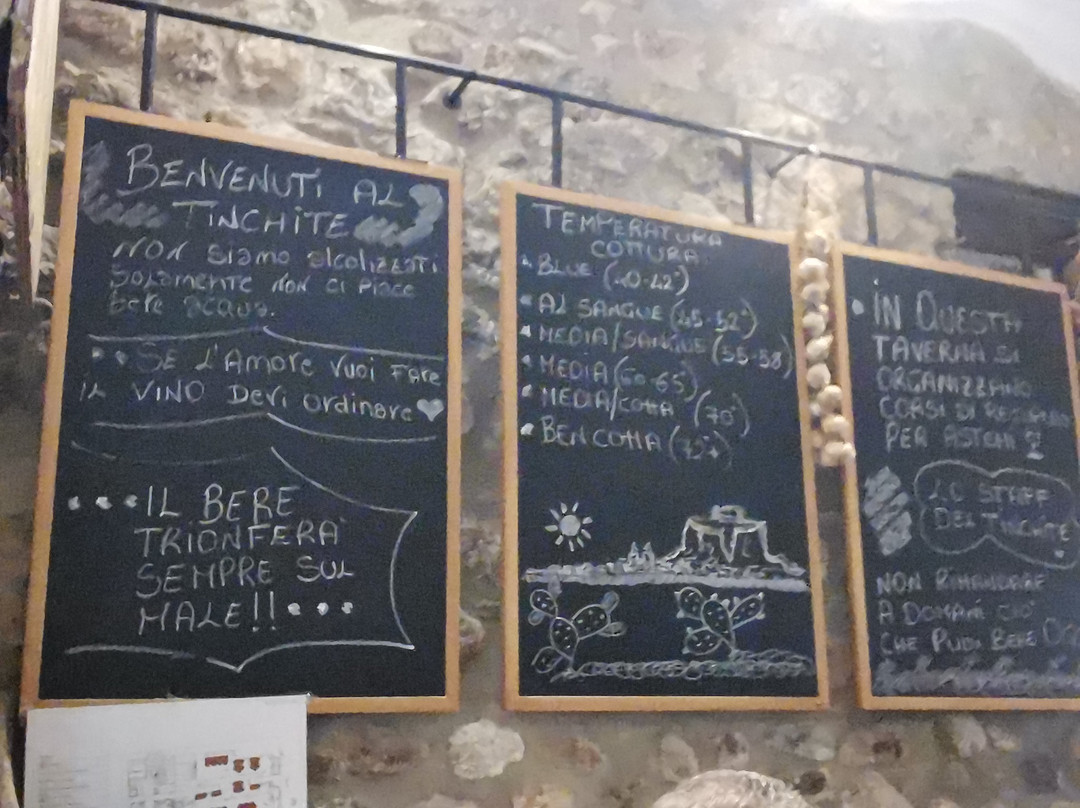 BENVENUTI AL
TINCHITE
NON siamo alcolizzati
solamente non ci piace
bere acqua.
SE L'AMORE VUOI FARE
IL VINO DEVI ordinare
...IL BERE
TRIONFERA'
SEMPRE SUL
MALE!!...
TEMPERATURA
COTTURA:
BLUE (40-42°)
AL SANGUE (45-52°)
MEDIA/SANGUE (55-58)
MEDIA (60-65°)
MEDIA/COTTA (70°)
BEN COTTA
IN QUESTA
TAVERNA SI
ORGANIZZANO
CORSI DI RECUPERO
PER ASTEMI
LO STAFF
DEL TINCHITE
NON RIMANDARE
A DOMANI CIO'
CHE PUOI BERE